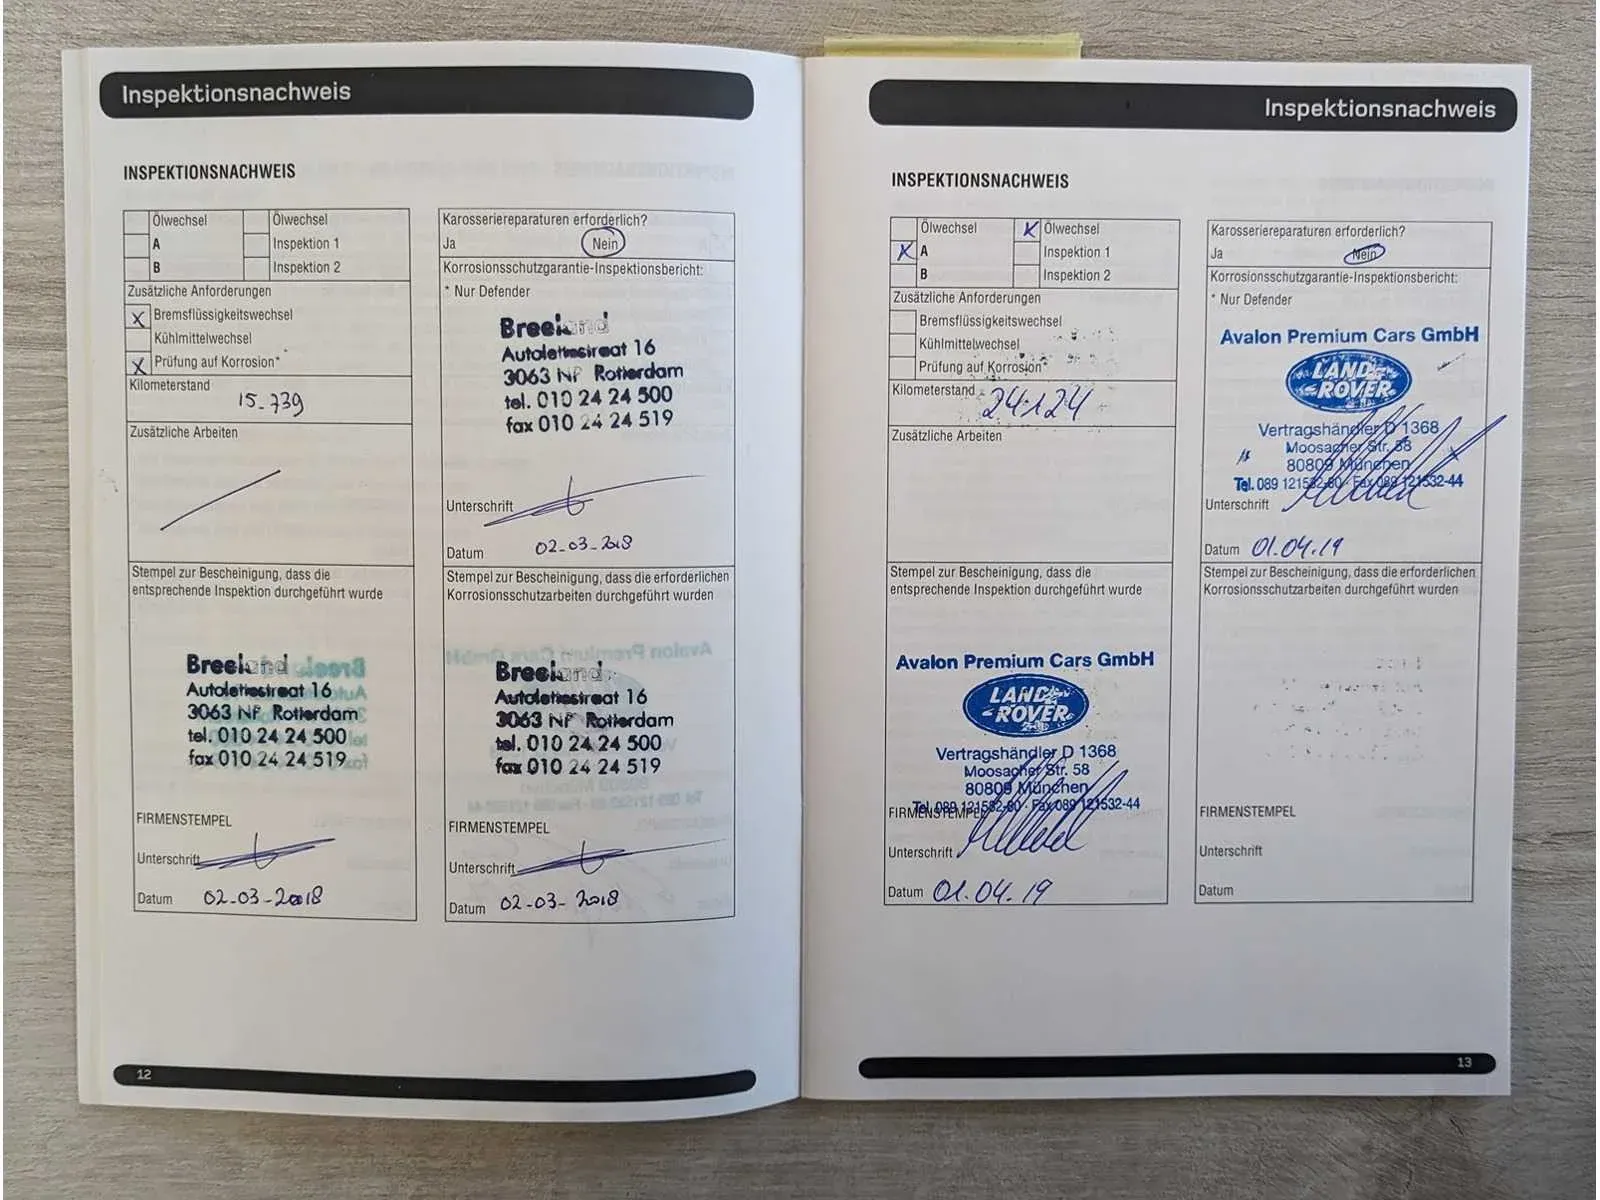 Inspektionsnachweis
INSPEKTIONSNACHWEIS
Ölwechsel
Ölwechsel
A
Inspektion 1
B
Inspektion 2
Zusätzliche Anforderungen
X Bremsflüssigkeitswechsel
Kühlmittelwechsel
X Prüfung auf Korrosion*
Kilometerstand
15-739
Zusätzliche Arbeiten
Stempel zur Bescheinigung, dass die
entsprechende Inspektion durchgeführt wurde
Breeland
Autolettestraat 16
3063 NP Rotterdam
tel. 010 24 24 500
fax 010 24 24 519
FIRMENSTEMPEL
Unterschrift
Datum 02-03-2018
Karosseriereparaturen erforderlich?
Ja Nein
Korrosionsschutzgarantie-Inspektionsbericht:
* Nur Defender
Breeland
Autolettestraat 16
3063 NP Rotterdam
tel. 010 24 24 500
fax 010 24 24 519
Unterschrift
Datum 02-03-2018
Stempel zur Bescheinigung, dass die erforderlichen
Korrosionsschutzarbeiten durchgeführt wurden
Breeland
Autolettestraat 16
3063 NP Rotterdam
tel. 010 24 24 500
fax 010 24 24 519
FIRMENSTEMPEL
Unterschrift
Datum 02-03-2018
12
Inspektionsnachweis
INSPEKTIONSNACHWEIS
Ölwechsel
X Ölwechsel
X A
Inspektion 1
B
Inspektion 2
Zusätzliche Anforderungen
Bremsflüssigkeitswechsel
Kühlmittelwechsel
Prüfung auf Korrosion*
Kilometerstand
24124
Zusätzliche Arbeiten
Stempel zur Bescheinigung, dass die
entsprechende Inspektion durchgeführt wurde
Avalon Premium Cars GmbH
LAND
ROVER
Vertragshändler D 1368
Moosacher Str. 58
80809 München
Tel. 089 121532-80 · Fax 089 121532-44
FIRMENSTEMPEL
Unterschrift
Datum 01.04.19
Karosseriereparaturen erforderlich?
Ja Nein
Korrosionsschutzgarantie-Inspektionsbericht:
* Nur Defender
Avalon Premium Cars GmbH
LAND
ROVER
Vertragshändler D 1368
Moosacher Str. 58
80809 München
Tel. 089 121532-80 · Fax 089 121532-44
Unterschrift
Datum 01.04.19
Stempel zur Bescheinigung, dass die erforderlichen
Korrosionsschutzarbeiten durchgeführt wurden
FIRMENSTEMPEL
Unterschrift
Datum
13